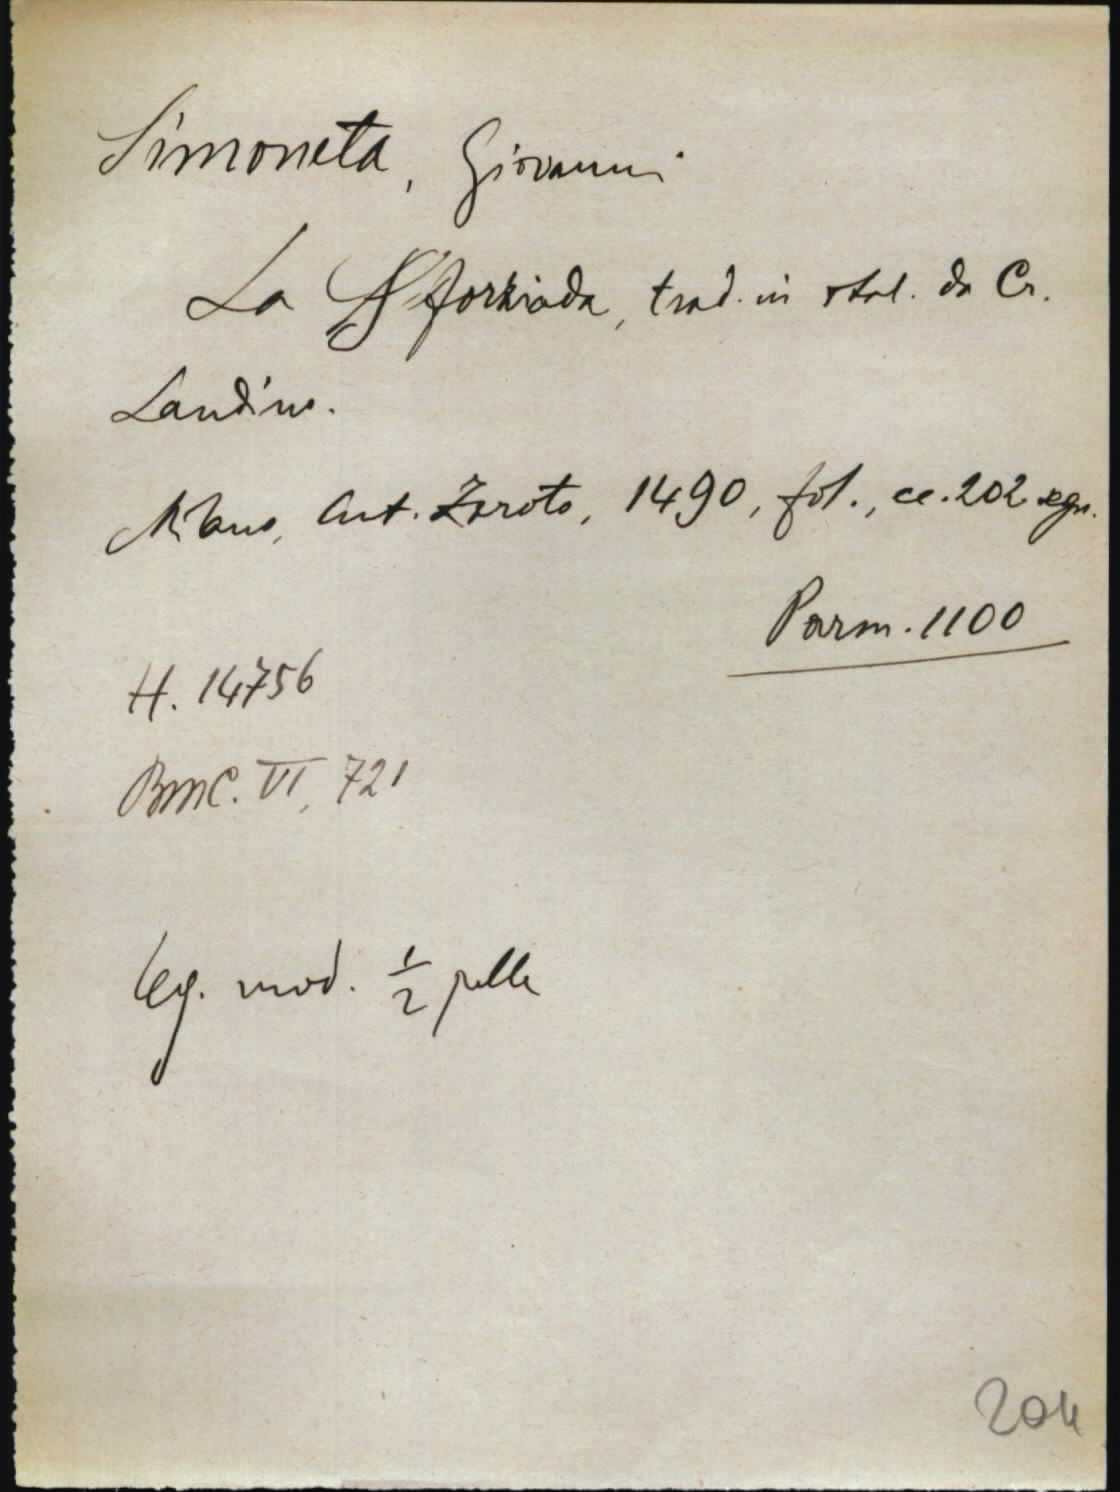 Simoneta, Giovanni
La Sforziada, trad. in ital. da Cr.
Landino.
Milano, Ant. Zaroto, 1490, fol., cc. 202 segn.
Parm. 1100
H. 14756
BMC. VI, 721
leg. mod. 1/2 pelle
204